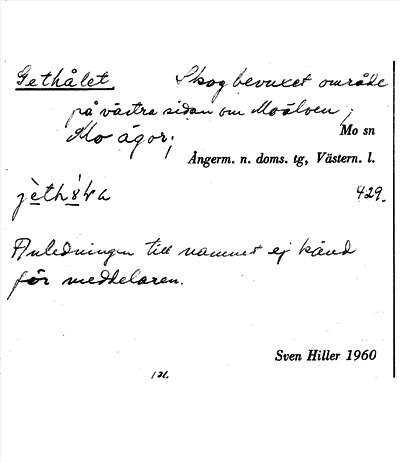 Gethålet. Skog bevuxet område
på västra sidan om Moälven,
Mo ägor;
Mo sn
Ångerm. n. doms. tg, Västern. l.
429.
Anledningen till namnet ej känd
för meddelaren.
Sven Hiller 1960